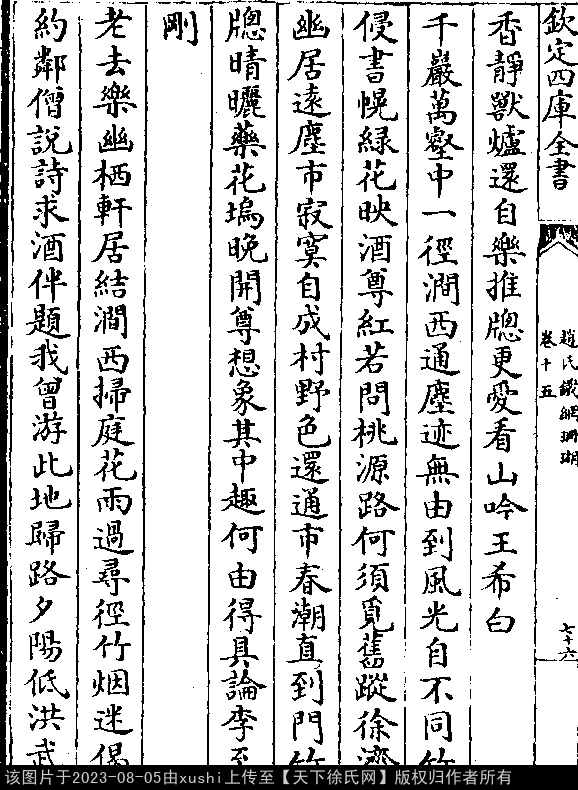 欽定四庫全書
趙氏鐵網珊瑚
卷十五
七十六
香靜獸爐還自樂推牕更愛看山吟王希白
千巖萬壑中一徑澗西通塵迹無由到風光自不同竹
侵書幌綠花映酒尊紅若問桃源路何須覓舊蹤徐濟
幽居遠塵市寂寞自成村野色還通市春潮直到門竹
牕晴曬藥花塢晚開尊想象其中趣何由得具論李至
剛
老去樂幽栖軒居結澗西掃庭花雨過尋徑竹烟迷偈
約鄰僧說詩求酒伴題我曾游此地歸路夕陽低洪武
该图片于2023-08-05由xushi上传至【天下徐氏网】版权归作者所有